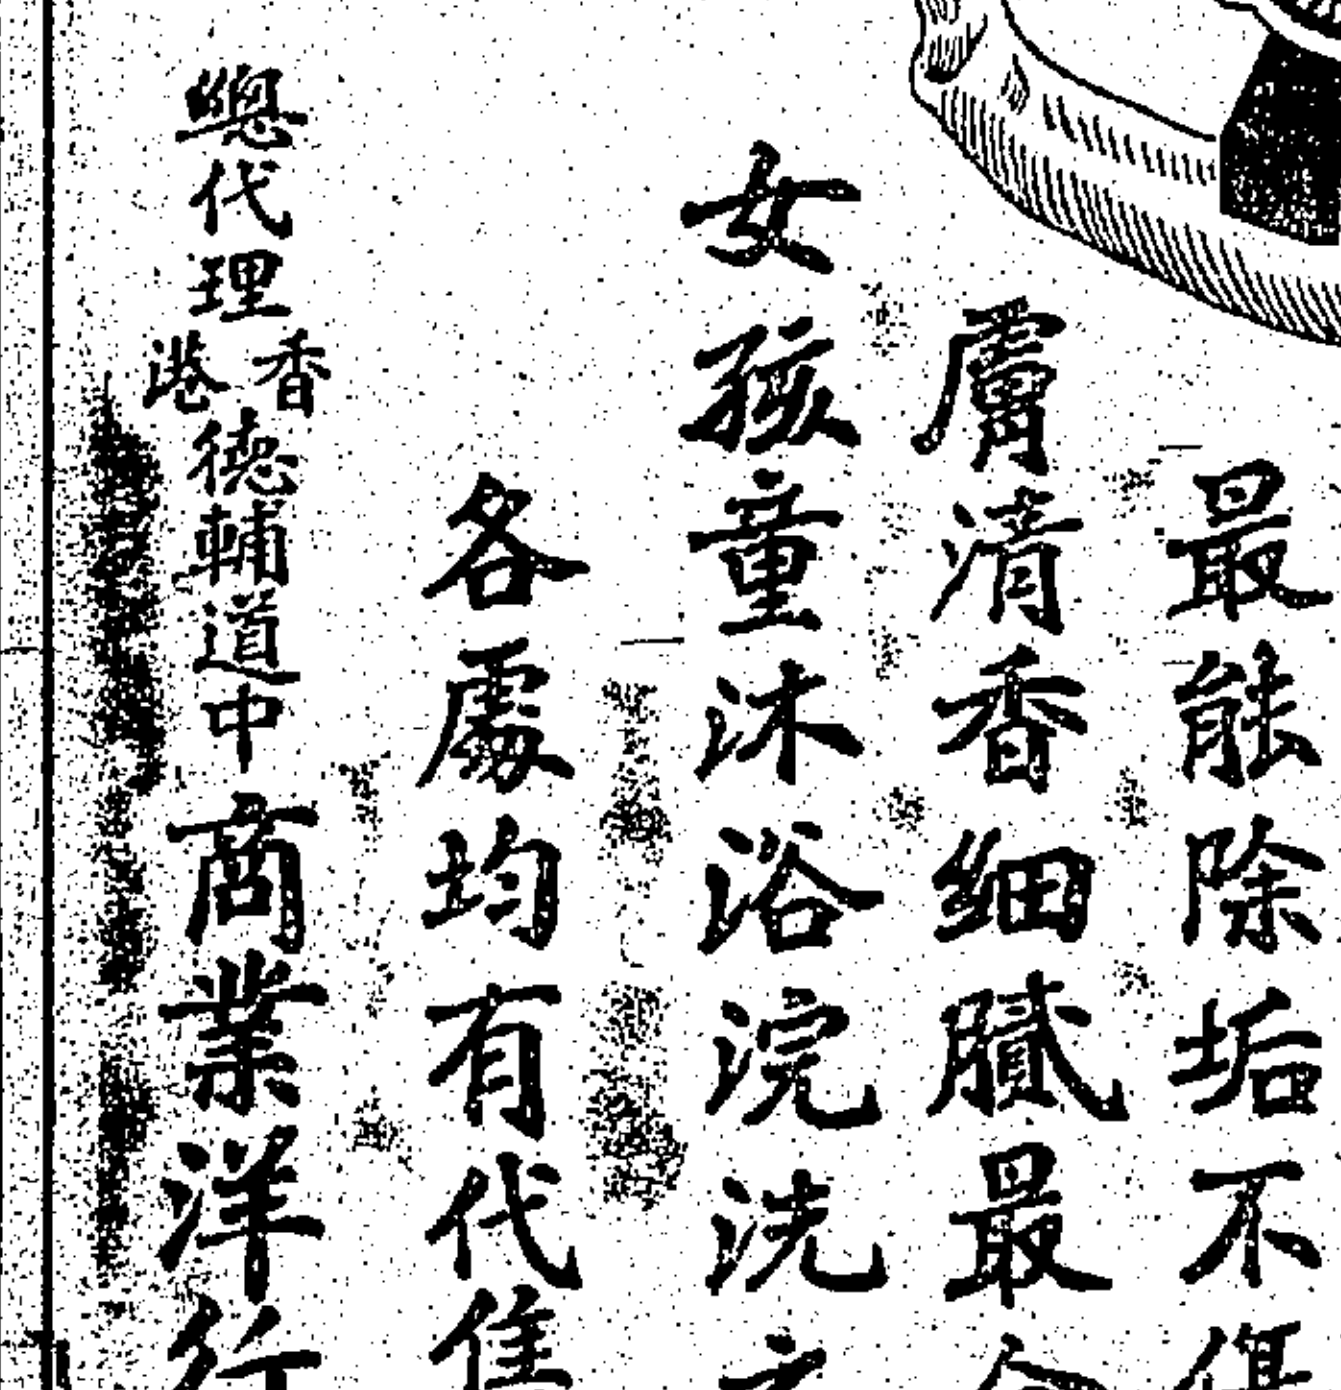 最能除垢不
膚清香細膩最
女孩童沐浴浣洗
各處均有代售
總代理香港德輔道中商業洋行